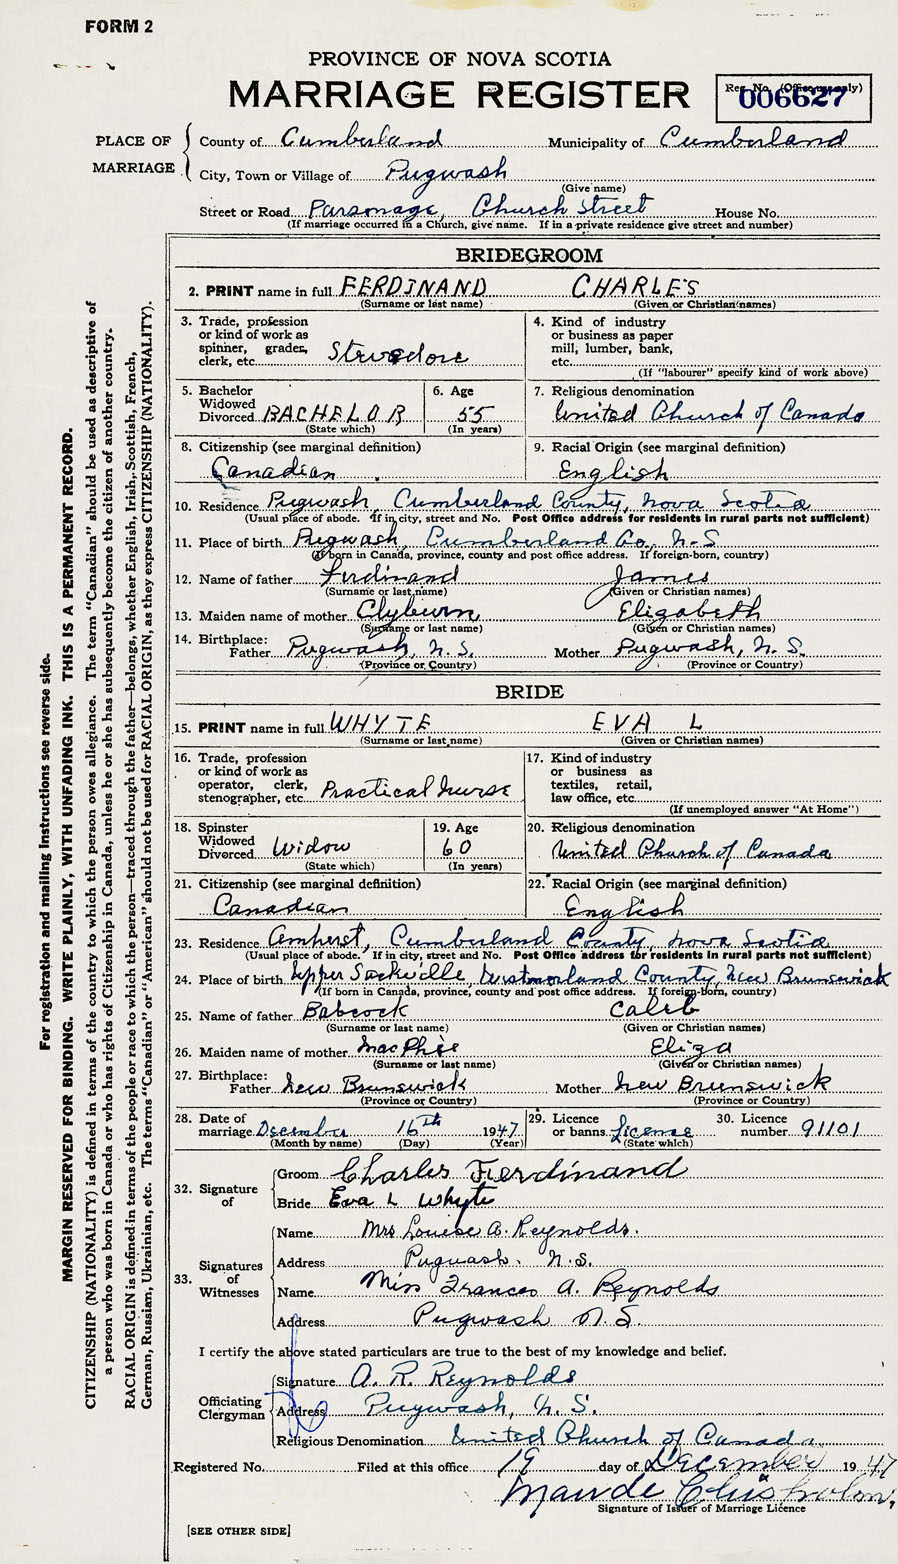 FORM 2
PROVINCE OF NOVA SCOTIA
MARRIAGE REGISTER
Reg. No. (Office use only)
006627
PLACE OF MARRIAGE
County of Cumberland Municipality of Cumberland
City, Town or Village of Pugwash
(Give name)
Street or Road Parsonage, Church Street House No.
(If marriage occurred in a Church, give name. If in a private residence give street and number)
BRIDEGROOM
2. PRINT name in full FERDINAND CHARLES
(Surname or last name) (Given or Christian names)
3. Trade, profession or kind of work as spinner, grader, clerk, etc. Stevedore
4. Kind of industry or business as paper mill, lumber, bank, etc.
(If "labourer" specify kind of work above)
5. Bachelor Widowed Divorced BACHELOR
(State which)
6. Age 55
(In years)
7. Religious denomination
United Church of Canada
8. Citizenship (see marginal definition)
Canadian
9. Racial Origin (see marginal definition)
English
10. Residence Pugwash, Cumberland County, Nova Scotia
(Usual place of abode. If in city, street and No. Post Office address for residents in rural parts not sufficient)
11. Place of birth Pugwash, Cumberland Co. N-S
(If born in Canada, province, county and post office address. If foreign-born, country)
12. Name of father Ferdinand James
(Surname or last name) (Given or Christian names)
13. Maiden name of mother Clyburn Elizabeth
(Surname or last name) (Given or Christian names)
14. Birthplace:
Father Pugwash, N. S. Mother Pugwash, N. S.
(Province or Country) (Province or Country)
BRIDE
15. PRINT name in full WHYTE EVA L
(Surname or last name) (Given or Christian names)
16. Trade, profession or kind of work as operator, clerk, stenographer, etc. Practical Nurse
17. Kind of industry or business as textiles, retail, law office, etc.
(If unemployed answer "At Home")
18. Spinster Widowed Divorced Widow
(State which)
19. Age 60
(In years)
20. Religious denomination
United Church of Canada
21. Citizenship (see marginal definition)
Canadian
22. Racial Origin (see marginal definition)
English
23. Residence Amherst, Cumberland County, Nova Scotia
(Usual place of abode. If in city, street and No. Post Office address for residents in rural parts not sufficient)
24. Place of birth Upper Sackville, Westmorland County, New Brunswick
(If born in Canada, province, county and post office address. If foreign-born, country)
25. Name of father Babcock Caleb
(Surname or last name) (Given or Christian names)
26. Maiden name of mother MacPhie Eliza
(Surname or last name) (Given or Christian names)
27. Birthplace:
Father New Brunswick Mother New Brunswick
(Province or Country) (Province or Country)
28. Date of marriage December 16th 1947
(Month by name) (Day) (Year)
29. Licence or banns License
(State which)
30. Licence number 91101
32. Signature of
Groom Charles Ferdinand
Bride Eva L Whyte
33. Signatures of Witnesses
Name Mrs Louise A. Reynolds.
Address Pugwash. N.S.
Name Miss Frances A. Reynolds
Address Pugwash N.S.
I certify the above stated particulars are true to the best of my knowledge and belief.
Officiating Clergyman
Signature A. R. Reynolds
Address Pugwash, N. S.
Religious Denomination United Church of Canada
Registered No. Filed at this office 19 day of December 1947
Maude Chisholm,
Signature of Issuer of Marriage Licence
[SEE OTHER SIDE]
For registration and mailing instructions see reverse side.
MARGIN RESERVED FOR BINDING. WRITE PLAINLY, WITH UNFADING INK. THIS IS A PERMANENT RECORD.
CITIZENSHIP (NATIONALITY) is defined in terms of the country to which the person owes allegiance. The term "Canadian" should be used as descriptive of
a person who was born in Canada or who has rights of Citizenship in Canada, unless he or she has subsequently become the citizen of another country.
RACIAL ORIGIN is defined in terms of the people or race to which the person—traced through the father—belongs, whether English, Irish, Scottish, French,
German, Russian, Ukrainian, etc. The terms "Canadian" or "American" should not be used for RACIAL ORIGIN, as they express CITIZENSHIP (NATIONALITY).